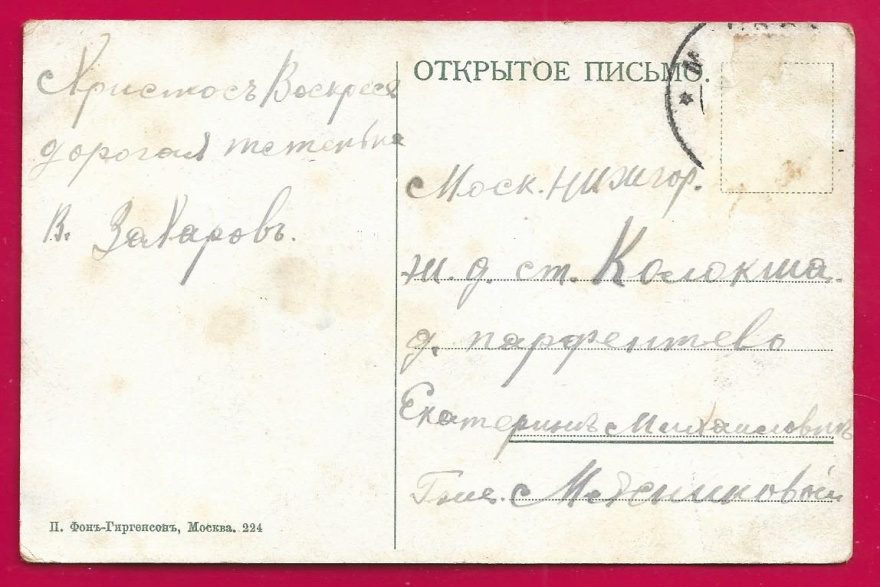 Христосъ Воскресе
дорогая тетенька
В. Захаровъ.
П. Фонъ-Гиргенсонъ, Москва. 224
ОТКРЫТОЕ ПИСЬМО.
Моск. Нижгор.
ж. д. ст. Колокша.
д. парфентево
Екатеринѣ Михаиловнѣ